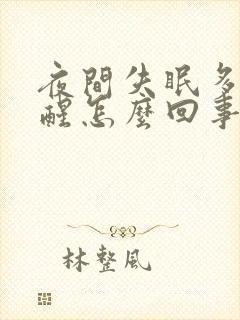 夜間失眠多
醒怎麼回事
林整風